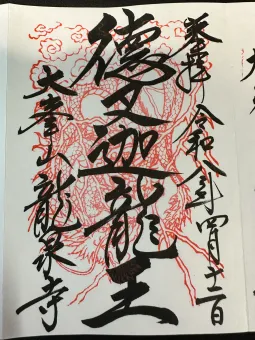 奉拝 令和八年四月十二日
德叉迦龍王
大峯山龍泉寺